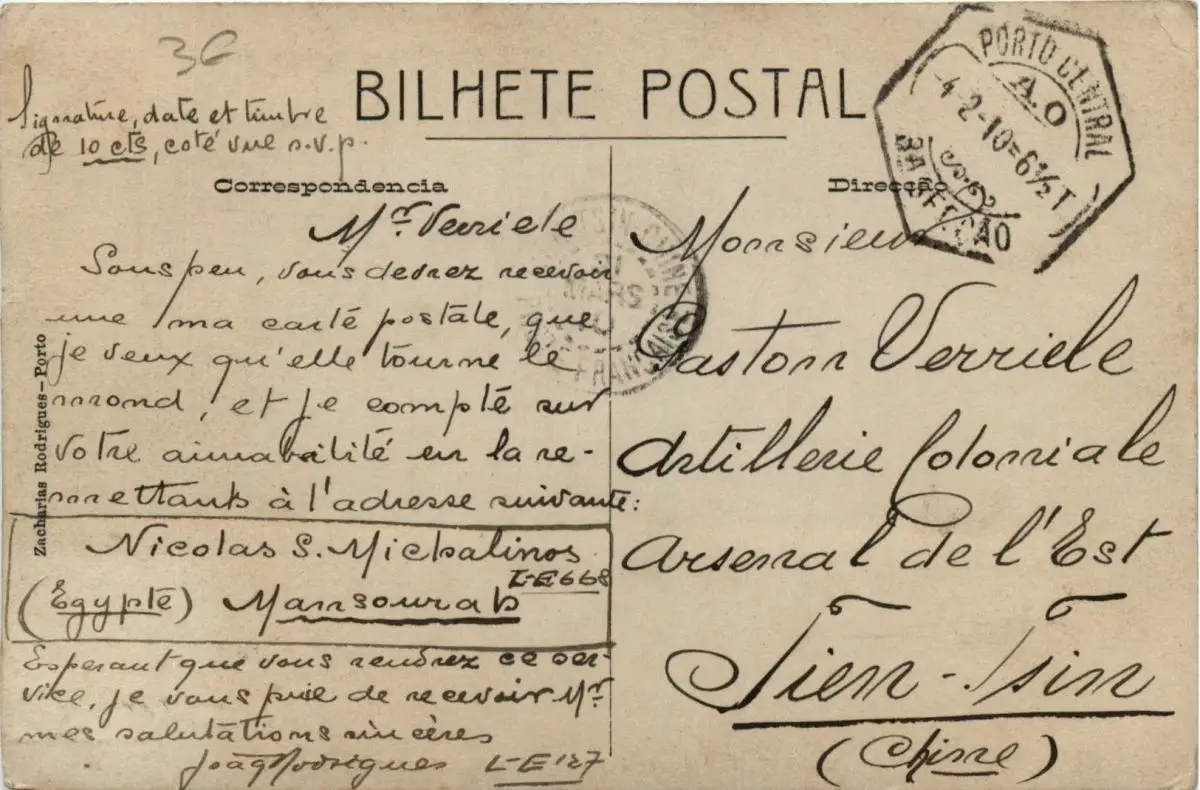 36
BILHETE POSTAL
Signature, date et timbre
de 10 cts, coté vue s.v.p.
PORTO CENTRAL
A.O
4-2-10=6½T
3A SECÇÃO
Correspondencia
Mr. Verriele
Sous peu, vous devrez recevoir
une ma carté postale, que
je veux qu'elle tourne le
mond, et je compte sur
votre aimabilité en la re-
mettants à l'adresse suivante:
Nicolas S. Michalinos
L-E668
(Egypte) Mansourah
Esperant que vous rendrez ce ser-
vice, je vous prie de recevoir Mr
mes salutations sincères
João Rodrigues L-E127
Zacharias Rodrigues—Porto
CHINE
MARS
FRANÇAISE
Direcção
Monsieur
Gaston Verriele
Artillerie Coloniale
Arsenal de l'Est
Tien-Tsin
(Chine)